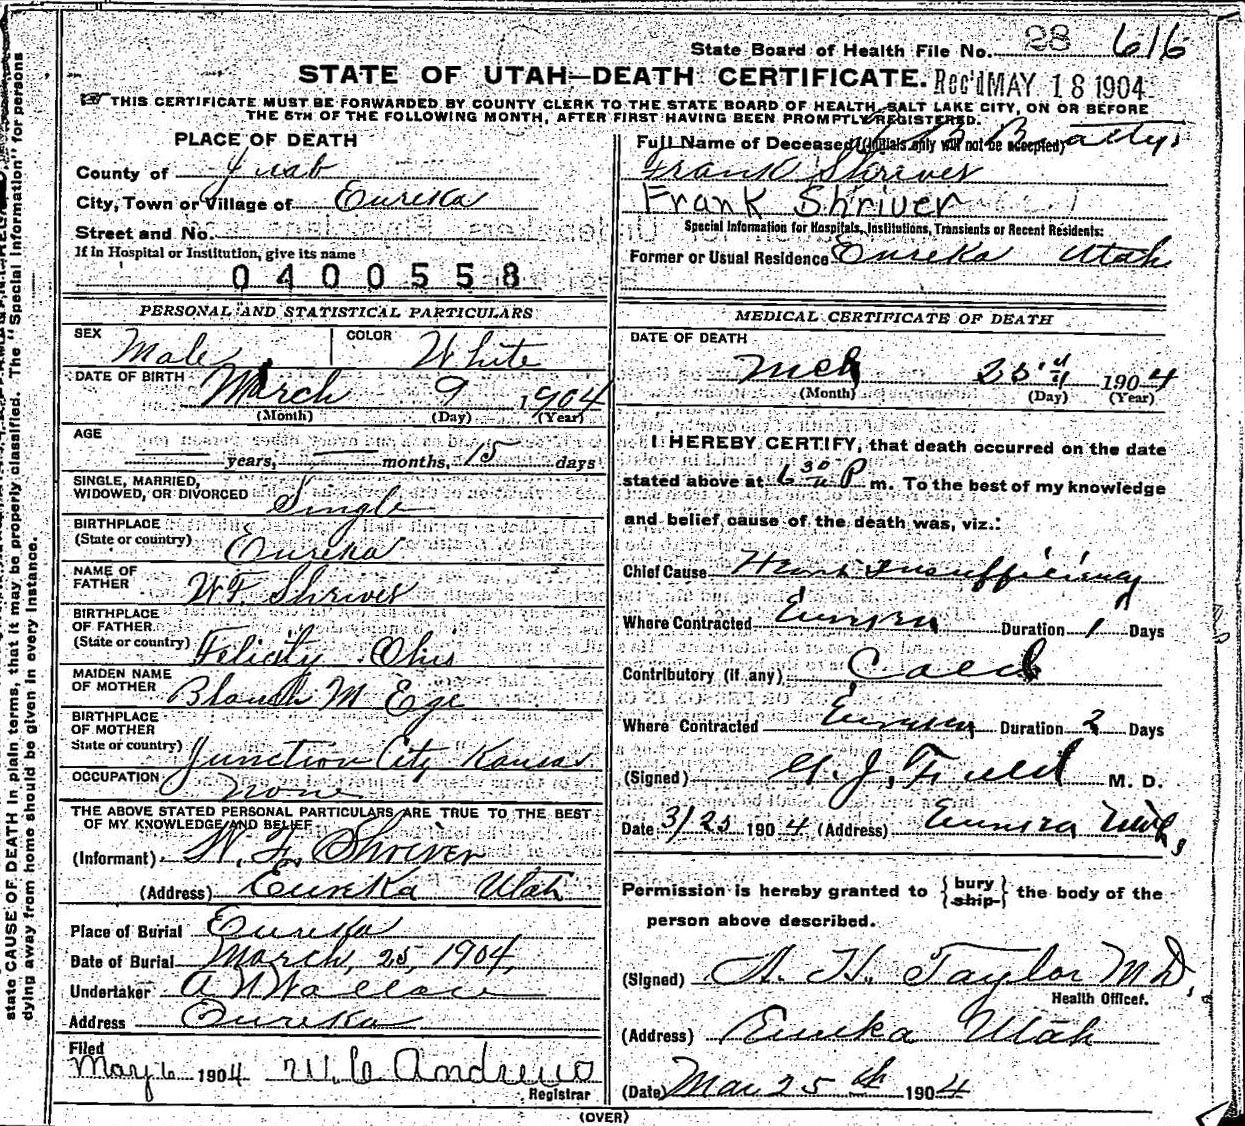 State Board of Health File No. 28 616
STATE OF UTAH—DEATH CERTIFICATE. Rec'd MAY 18 1904
THIS CERTIFICATE MUST BE FORWARDED BY COUNTY CLERK TO THE STATE BOARD OF HEALTH, SALT LAKE CITY, ON OR BEFORE
THE 5TH OF THE FOLLOWING MONTH, AFTER FIRST HAVING BEEN PROMPTLY REGISTERED.
PLACE OF DEATH
County of Juab
City, Town or Village of Eureka
Street and No.
If in Hospital or Institution, give its name
0400558
Full Name of Deceased (Initials only will not be accepted) Beatty
Frank Shriver
Frank Shriver
Special Information for Hospitals, Institutions, Transients or Recent Residents:
Former or Usual Residence Eureka Utah
PERSONAL AND STATISTICAL PARTICULARS
SEX Male COLOR White
DATE OF BIRTH March 9 1904
(Month) (Day) (Year)
AGE
— years, — months, 15 days
SINGLE, MARRIED,
WIDOWED, OR DIVORCED Single
BIRTHPLACE
(State or country) Eureka
NAME OF
FATHER W F. Shriver
BIRTHPLACE
OF FATHER
(State or country) Felicity Ohio
MAIDEN NAME
OF MOTHER Blanch M Ege
BIRTHPLACE
OF MOTHER
State or country) Junction City Kansas
OCCUPATION none
THE ABOVE STATED PERSONAL PARTICULARS ARE TRUE TO THE BEST
OF MY KNOWLEDGE AND BELIEF
(Informant) W. F. Shriver
(Address) Eureka Utah
Place of Burial Eureka
Date of Burial March, 25, 1904,
Undertaker A N Wallace
Address Eureka
Filed
May 6 1904 W. C Andrews
Registrar
MEDICAL CERTIFICATE OF DEATH
DATE OF DEATH
Mch 1904
(Month) (Day) (Year)
I HEREBY CERTIFY, that death occurred on the date
stated above at 6 30 P m. To the best of my knowledge
and belief cause of the death was, viz.:
Chief Cause Heart Insufficiency
Where Contracted Eureka Duration 1 Days
Contributory (if any) Cold
Where Contracted Eureka Duration 2 Days
(Signed) J. Field M. D.
Date 3/25 1904 (Address) Eureka Utah,
Permission is hereby granted to { bury ship } the body of the
person above described.
(Signed) A. H. Taylor M D,
Health Officer.
(Address) Eureka Utah
(Date) Mar 25th 1904
(OVER)
state CAUSE OF DEATH in plain terms, that it may be properly classified. The "Special Information" for persons
dying away from home should be given in every instance.